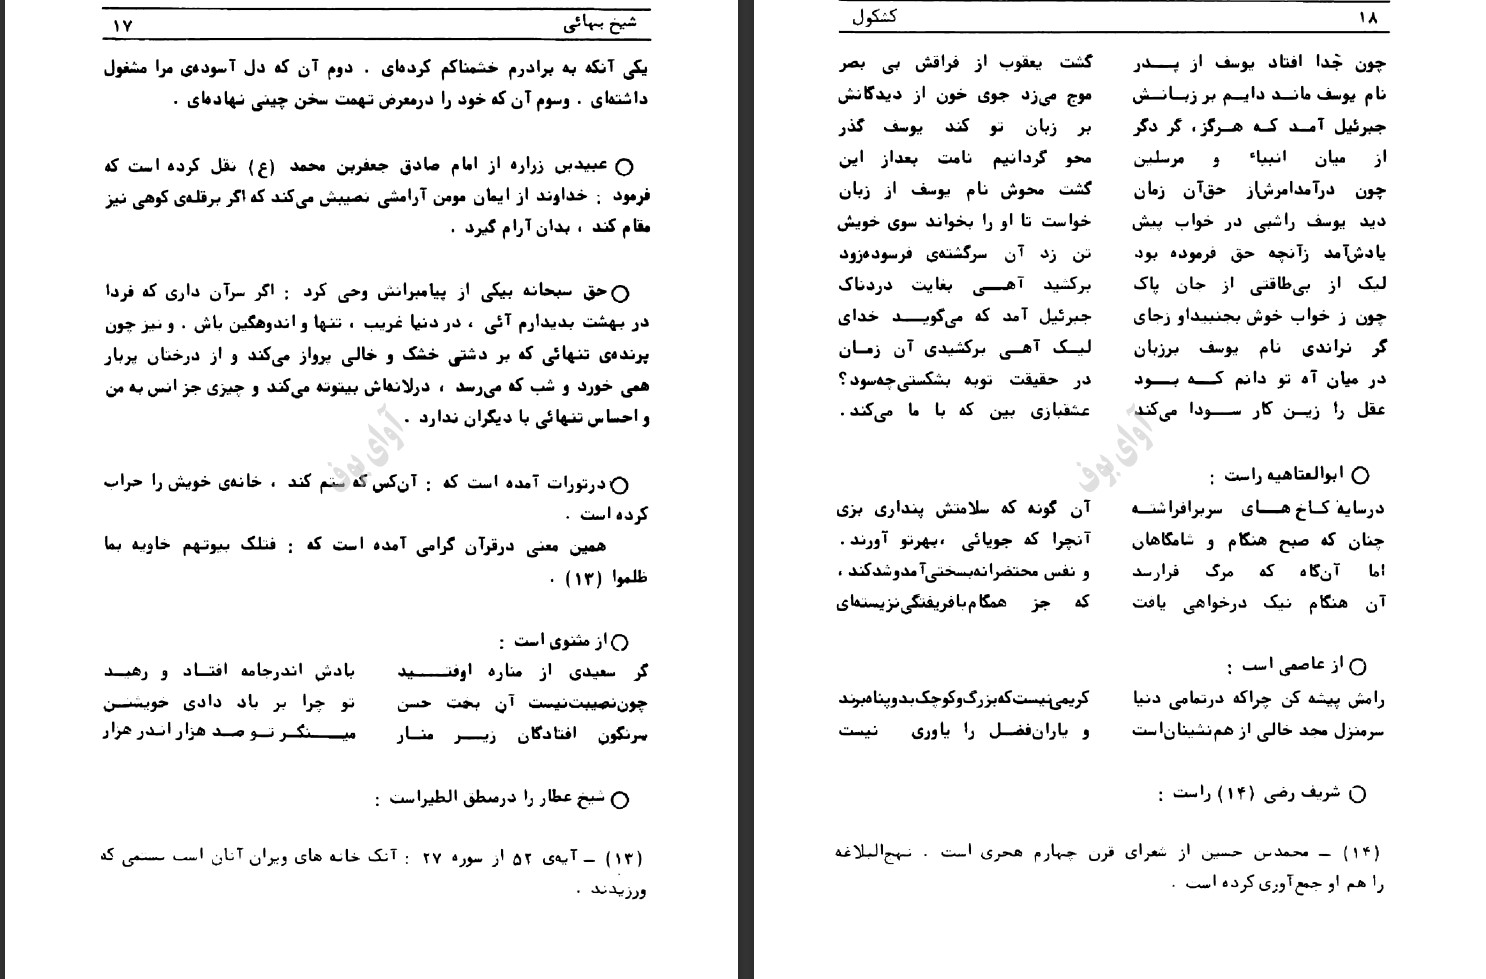 شیخ بهائی ۱۷
یکی آنکه به برادرم خشمناکم کرده‌ای . دوم آن که دل آسوده‌ی مرا مشغول
داشته‌ای . وسوم آن که خود را درمعرض تهمت سخن چینی نهاده‌ای .
○ عبیدبن زراره از امام صادق جعفربن محمد (ع) نقل کرده است که
فرمود : خداوند از ایمان مومن آرامشی نصیبش می‌کند که اگر برقله‌ی کوهی نیز
مقام کند ، بدان آرام گیرد .
○ حق سبحانه بیکی از پیامبرانش وحی کرد : اگر سرآن داری که فردا
در بهشت بدیدارم آئی ، در دنیا غریب ، تنها و اندوهگین باش . و نیز چون
پرنده‌ی تنهائی که بر دشتی خشک و خالی پرواز می‌کند و از درختان پربار
همی خورد و شب که می‌رسد ، درلانه‌اش بیتوته می‌کند و چیزی جز انس به من
و احساس تنهائی با دیگران ندارد .
○ درتورات آمده است که : آن‌کس که ستم کند ، خانه‌ی خویش را خراب
کرده است .
همین معنی درقرآن گرامی آمده است که : فتلک بیوتهم خاویه بما
ظلموا (۱۳) .
○ از مثنوی است :
گر سعیدی از مناره اوفتـــــید بادش اندرجامه افتـاد و رهیـد
چون‌نصیبت‌نیست آن بخت حسن تو چرا بر باد دادی خویشتـن
سرنگون افتادگان زیـــر منـار میـــنگـر تـو صـد هزار اندر هزار
○ شیخ عطار را درمنطق الطیراست :
(۱۳) – آیه‌ی ۵۲ از سوره ۲۷ : آنک خانه های ویران آنان است بستمی که
ورزیدند .
آوای بوف
۱۸ کشکول
چون جُدا افتاد یوسف از پـــدر گشت یعقوب از فراقش بی بصر
نام یوسف مانـد دایـم بر زبـانـش موج می‌زد جوی خون از دیدگانش
جبرئیل آمـد کـه هـرگز، گر دگر بر زبان تو کند یوسف گذر
از میان انبیاء و مرسلین محو گردانیم نامت بعداز این
چون درآمدامرش‌از حق‌آن زمان گشت محوش نام یوسف از زبان
دید یوسف راشبی در خواب پیش خواست تا او را بخواند سوی خویش
یادش‌آمد زآنچه حق فرموده بود تن زد آن سرگشته‌ی فرسوده‌زود
لیک از بی‌طاقتی از جان پاک برکشید آهـــی بغایت دردناک
چون ز خواب خوش بجنبیداو زجای جبرئیل آمد که می‌گویـــد خدای
گر نراندی نام یوسف برزبان لیـک آهـی برکشیدی آن زمـان
در میان آه تو دانم کـــه بـــود در حقیقت توبه بشکستی‌چه‌سود؟
عقل را زیـن کار ســـودا می‌کند عشقبازی بین که با ما می‌کند.
○ ابوالعتاهیه راست :
درسایهٔ کـاخ هـــای سربرافراشتـه آن گونه که سلامتش پنداری بزی
چنان که صبح هنگام و شامگاهان آنچرا که جویائی ،بهرتو آورند.
اما آن‌گاه که مرگ فرارسد و نفس محتضرانه‌بسختی‌آمدوشدکند ،
آن هنگام نیک درخواهی یافت که جز همگام‌بافریفتگی‌نزیسته‌ای
○ از عاصمی است :
رامش پیشه کن چراکه درتمامی دنیا کریمی‌نیست‌که‌بزرگ‌وکوچک‌بدوپناه‌برند
سرمنزل مجد خالی از هم‌نشینان‌است و یاران‌فضـل را یاوری نیست
○ شریف رضی (۱۴) راست :
(۱۴) – محمدبن حسین از شعرای قرن چهارم هجری است . نهج‌البلاغه
را هم او جمع‌آوری کرده است .
آوای بوف